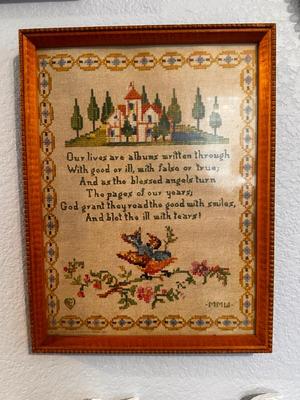 Our lives are albums written through
With good or ill, with false or true;
And as the blessed angels turn
The pages of our years;
God grant they read the good with smiles,
And blot the ill with tears!